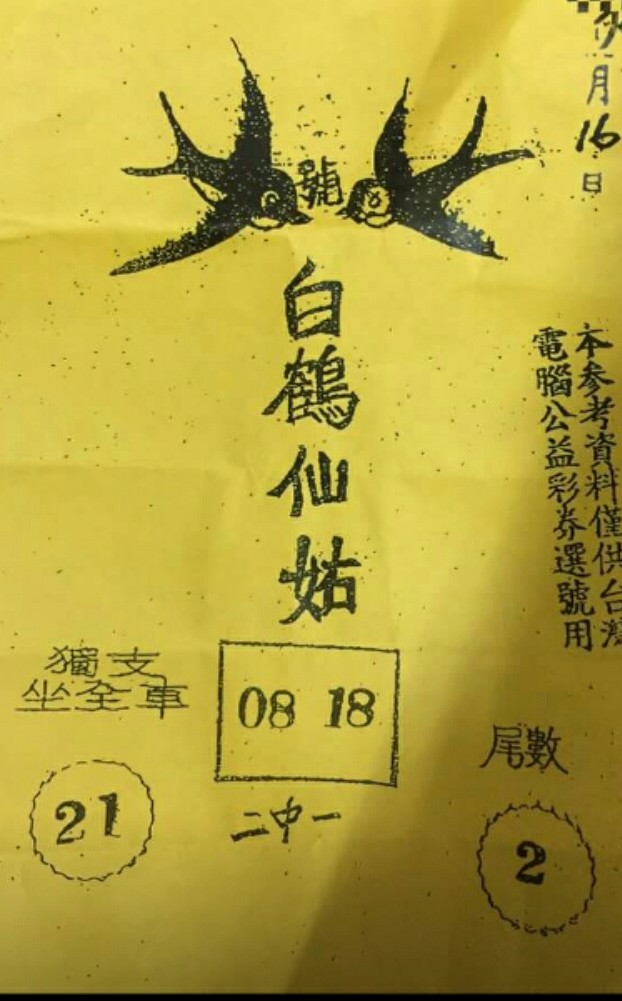 月16日
號
白鶴仙姑
本參考資料僅供台灣
電腦公益彩券選號用
獨支
坐全車
21
08 18
二中一
尾數
2